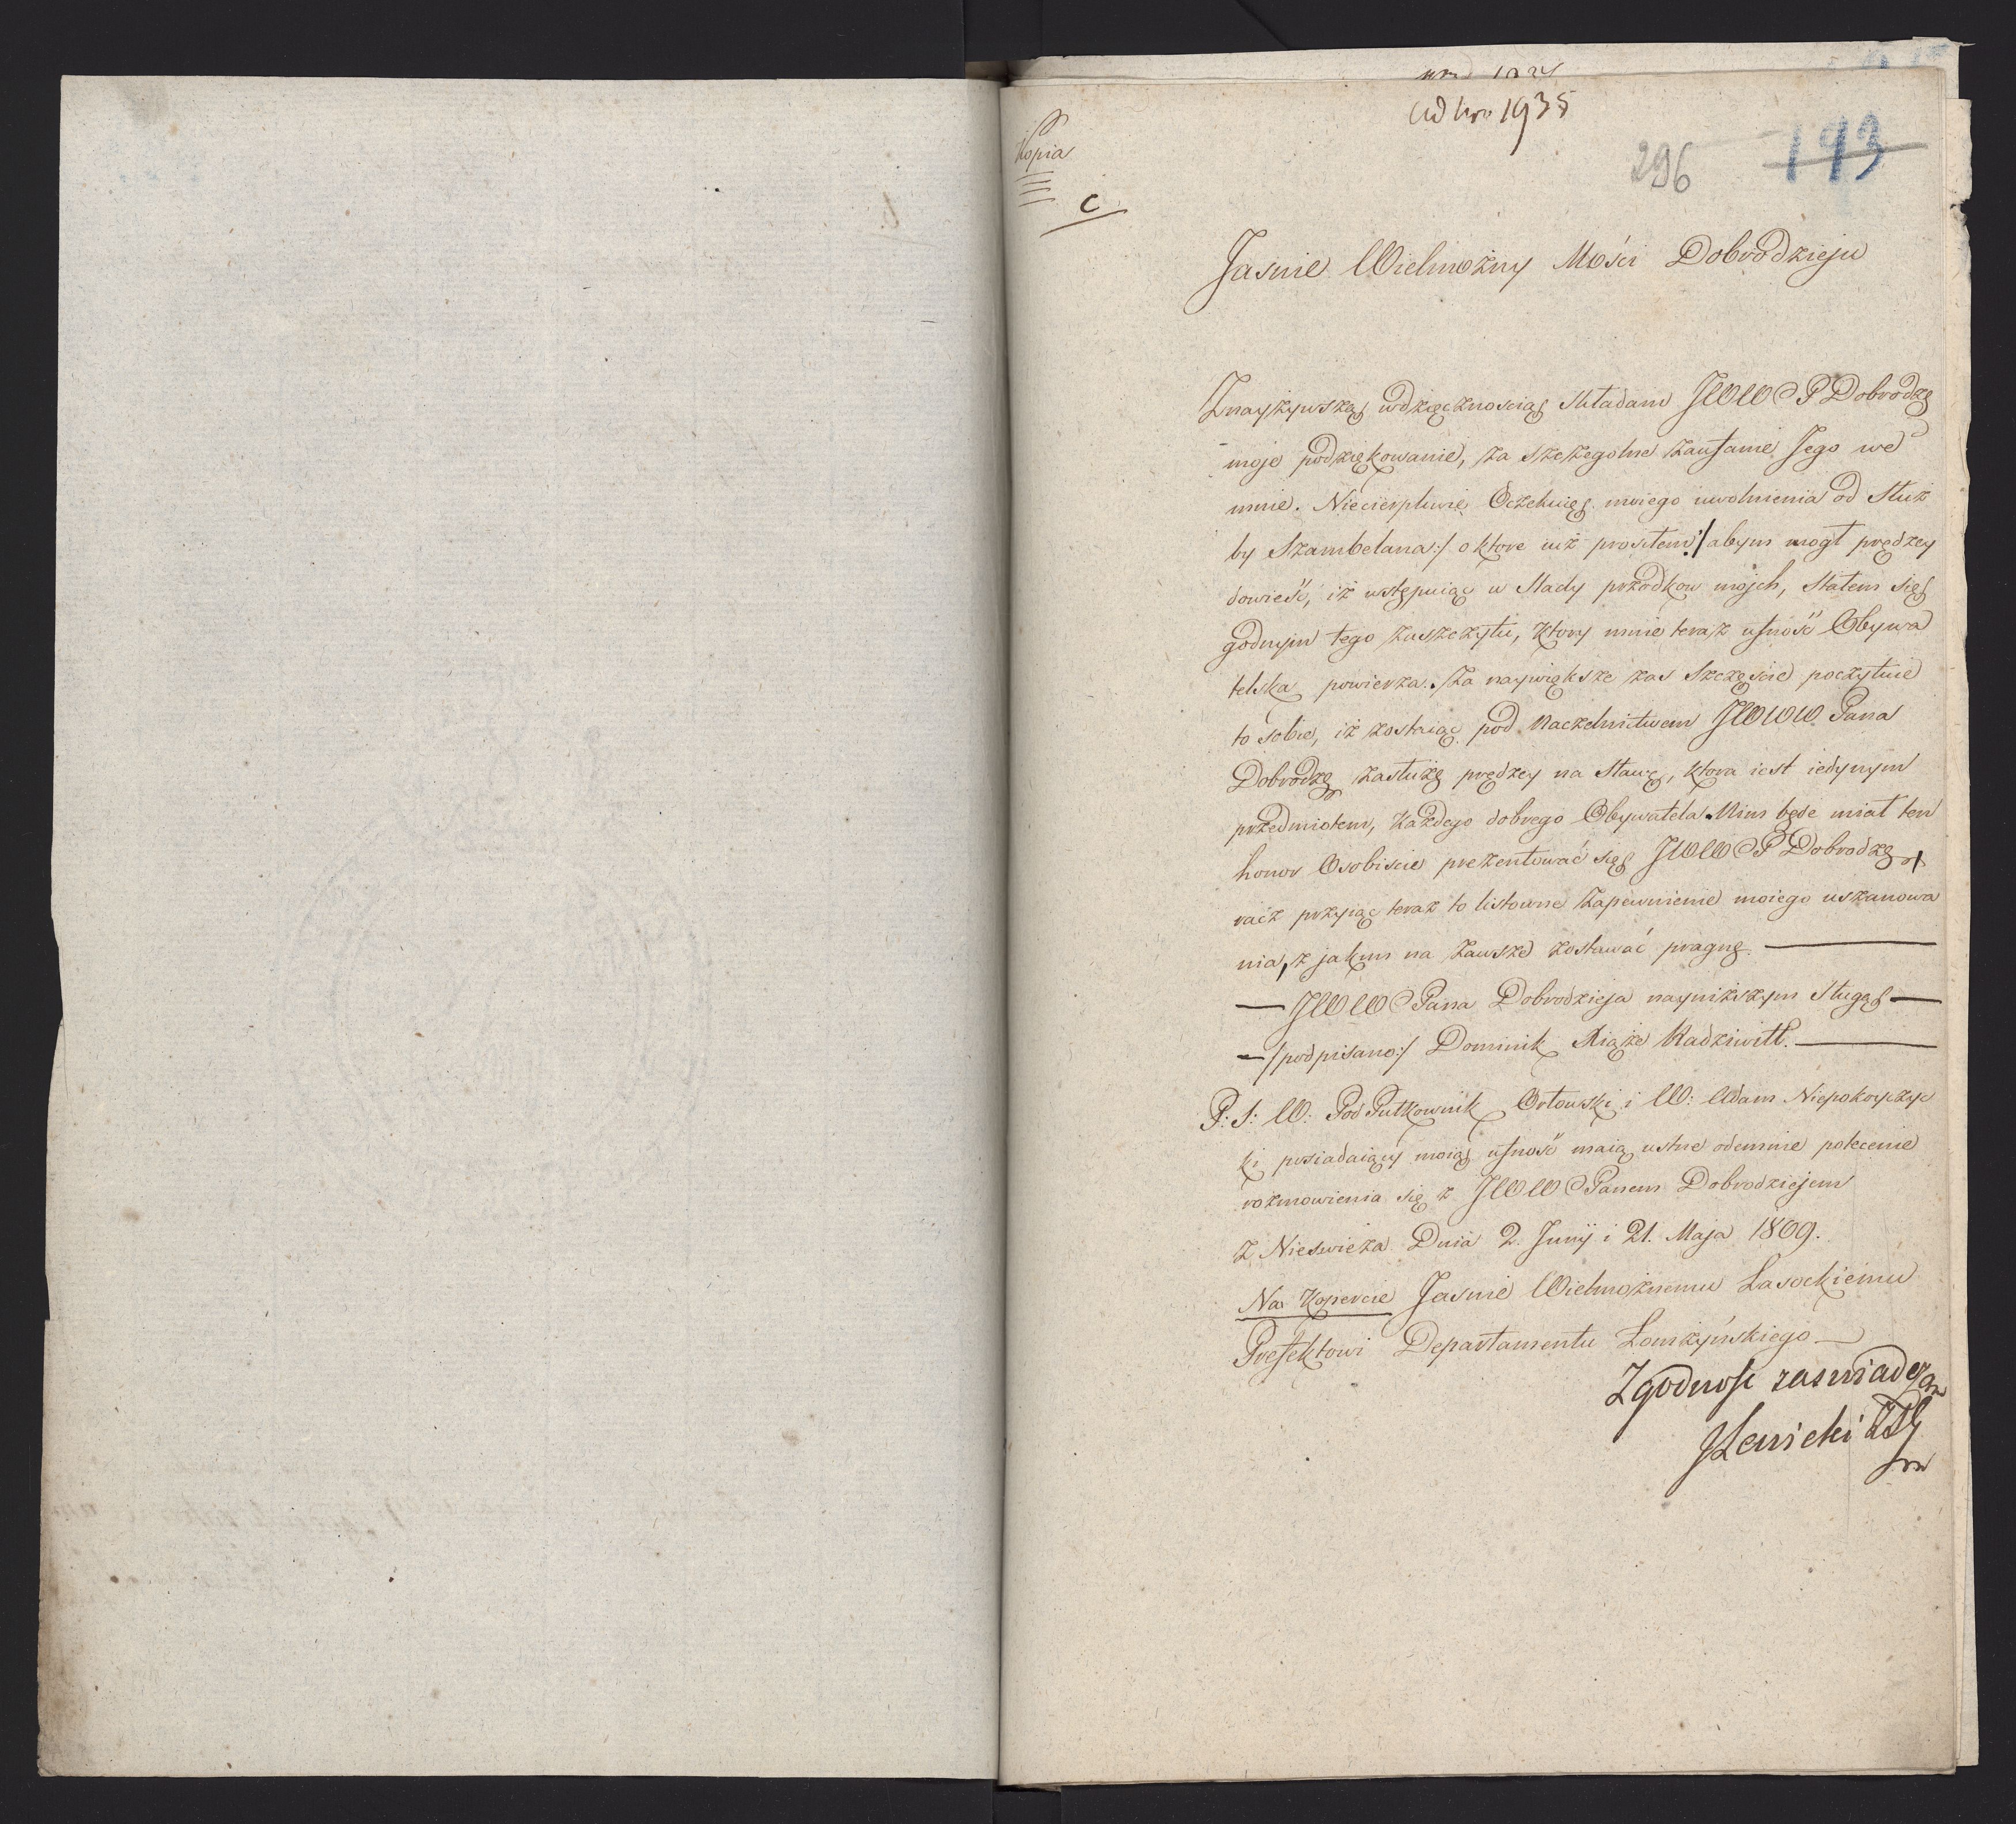 Ad Nro 1935
Kopia
296 193
C
Jasnie Wielmożny Mości Dobrodzieju
Znayżywszą wdzięcznością składam JWW P Dobrodzę
moje podziękowanie, za szczegolne zaufanie Jego we
mnie. Niecierpliwie Oczekuię moiego uwolnienia od Służ
by Szambelana :/ o ktore iuż prositem :/ abym mogł prędzey
dowieść, iż wstępuiąc w Slady przodkow mojch, Stałem się
godnym tego zaszczytu, ktory mnie teraz ufność Obywa
telska powierza. Za naywiększe zas Szczęście poczytuie
to sobie, iż zostaiąc pod Naczelnictwem JWWW Pana
Dobrodzę zasłużę prędzey na Sławę, ktora iest iedynym
przedmiotem, Każdego dobrego Obywatela. Nim będe miał ten
honor Osobiscie prezentować się JWW P Dobrodzę
racz przyiąc teraz to listowne Zapewnienie moiego uszanowa
nia, z jakim na zawsze zostawać pragnę.
— JWW Pana Dobrodzieja naynizszym Sługą —
— /podpisano:/ Dominik Xiąże Radziwiłł. —
P: S: W: Pod Pułkownik Orłowski i W: Adam Niepokoyczyc
ki posiadaiący moią ufność maią ustne odemnie polecenie
rozmowienia się z JWW Panem Dobrodziejem
z Nieswieza Dnia 2. Junij i 21. Maja 1809.
Na Kopercie Jasnie Wielmożnemu Lasockiemu
Prefektowi Departamentu Łomżyńskiego —
Zgodnosc zaswiadczam
JLewicki